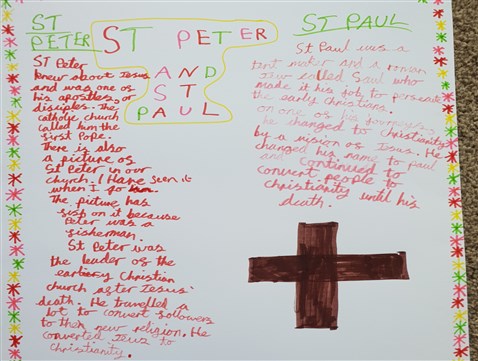 ST
PETER
ST PETER
AND
ST
PAUL
ST PAUL
ST Peter
knew about Jesus
and was one of
his apostles, or
disciples. the
catholic church
called him the
first Pope.
There is also
a picture of
St Peter in our
church. I have seen it
when I go
The picture has
fish on it because
Peter was a
fisherman.
St Peter was
the leader of the
earliery Christian
church after Jesus'
death. He travelled a
lot to convert followers
to their new religion. He
converted Jews to
christianity.
St Paul was a
tent maker and a roman
Jew called Saul who
made it his job to persecute
the early christians.
on one of his journeys
he changed to christianity
by a vision of Jesus. He
changed his name to paul
and continued to
convert people to
christianity until his
death.